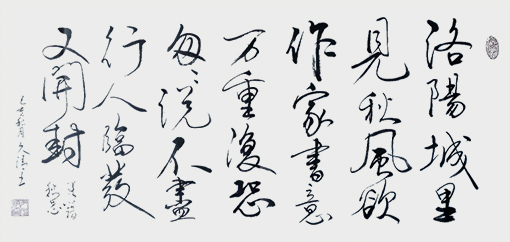 洛陽城里
見秋風欲
作家書意
万重復恐
匆〻説不盡
行人臨發
又開封
張籍
秋思